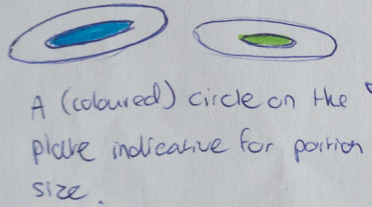 A (coloured) circle on the
plate indicative for portion
size.